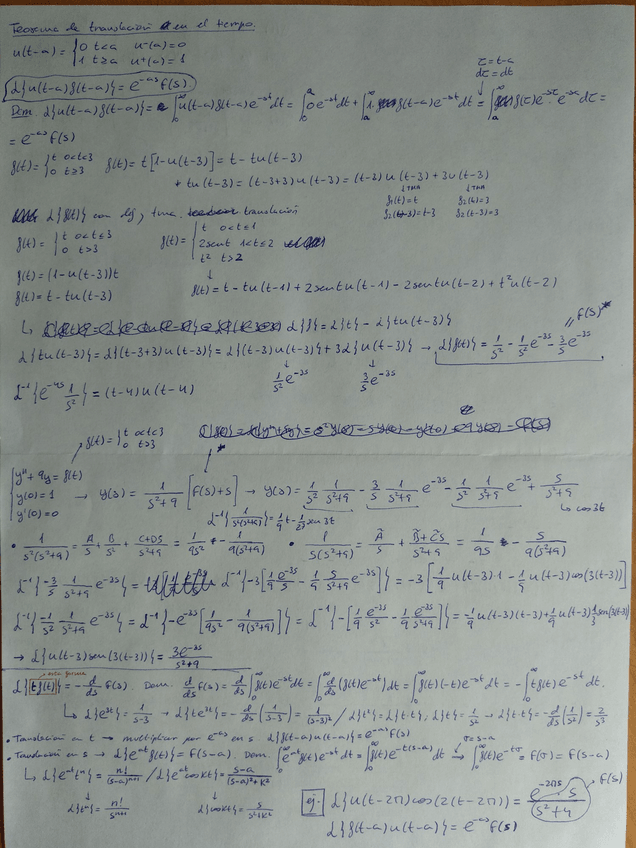 Teorema de translación en el tiempo.
u(t-a) = { 0 t<a u⁻(a)=0
1 t≥a u⁺(a)=1
τ = t-a
dτ = dt
ℒ{u(t-a)f(t-a)} = e^{-as} F(s).
Dem. ℒ{u(t-a)f(t-a)} = ∫₀^∞ u(t-a)f(t-a)e^{-st}dt = ∫₀^a 0 e^{-st}dt + ∫ₐ^∞ 1· f(t-a)e^{-st}dt = ∫ f(τ)e^{-sτ}·e^{-sa}dτ =
= e^{-as} f(s)
f(t) = { t 0<t<3 f(t) = t[1-u(t-3)] = t - tu(t-3)
0 t≥3
* tu(t-3) = (t-3+3)u(t-3) = (t-3)u(t-3) + 3u(t-3)
↓TMA ↓TMA
f₁(t)=t f₂(t)=3
f₁(t-3)=t-3 f₂(t-3)=3
ℒ{f(t)} con def, tma. translación
f(t) = { t 0<t≤3 f(t) = { t 0<t≤1
0 t>3 2sent 1<t≤2
t² t>2
f(t) = (1-u(t-3))t
f(t) = t - tu(t-3) f(t) = t - tu(t-1) + 2sent u(t-1) - 2sent u(t-2) + t²u(t-2)
ℒ{f} = ℒ{t} - ℒ{tu(t-3)} F(s)*
ℒ{tu(t-3)} = ℒ{(t-3+3)u(t-3)} = ℒ{(t-3)u(t-3)} + 3ℒ{u(t-3)} → ℒ{f(t)} = 1/s² - 1/s² e^{-3s} - 3/s e^{-3s}
1/s² e^{-3s} 3/s e^{-3s}
ℒ⁻¹{e^{-4s} 1/s²} = (t-4)u(t-4)
f(t) = { t 0<t<3
0 t≥3
{ y''+9y = f(t)
y(0)=1 → y(s) = 1/(s²+9) [F(s)+s] → y(s) = 1/s² 1/(s²+9) - 3/s 1/(s²+9) e^{-3s} - 1/s² 1/(s²+9) e^{-3s} + s/(s²+9)
y'(0)=0
↳ cos3t
ℒ⁻¹{1/(s²(s²+9))} = 1/9 t - 1/27 sen3t
• 1/(s²(s²+9)) = A/s + B/s² + (C+Ds)/(s²+9) = 1/(9s²) - 1/(9(s²+9)) • 1/(s(s²+9)) = Ã/s + (B̃+C̃s)/(s²+9) = 1/(9s) - s/(9(s²+9))
ℒ⁻¹{-3/s 1/(s²+9) e^{-3s}} = ℒ⁻¹{-3[1/9 e^{-3s}/s - 1/9 s/(s²+9) e^{-3s}]} = -3[1/9 u(t-3)·1 - 1/9 u(t-3)cos(3(t-3))]
ℒ⁻¹{-1/s² 1/(s²+9) e^{-3s}} = ℒ⁻¹{-e^{-3s}[1/(9s²) - 1/(9(s²+9))]} = ℒ⁻¹{-[1/9 e^{-3s}/s² - 1/9 e^{-3s}/(s²+9)]} = -1/9 u(t-3)(t-3) + 1/9 u(t-3) 1/3 sen(3(t-3))
→ ℒ{u(t-3)sen(3(t-3))} = 3e^{-3s}/(s²+9)
ℒ{tf(t)} = -d/ds f(s). Dem. d/ds f(s) = d/ds ∫₀^∞ f(t)e^{-st}dt = ∫₀^∞ d/ds (f(t)e^{-st})dt = ∫₀^∞ f(t)(-t)e^{-st}dt = -∫₀^∞ tf(t)e^{-st}dt.
↳ ℒ{e^{3t}} = 1/(s-3) → ℒ{te^{3t}} = -d/ds(1/(s-3)) = 1/(s-3)² / ℒ{t²} = ℒ{t·t}, ℒ{t} = 1/s² → ℒ{t·t} = -d/ds(1/s²) = 2/s³
• Translación en t → multiplicar por e^{-as} en s. ℒ{f(t-a)u(t-a)} = e^{-as}f(s)
• Translación en s → ℒ{e^{at}f(t)} = F(s-a). Dem. ∫₀^∞ e^{at}f(t)e^{-st}dt = ∫₀^∞ f(t)e^{-t(s-a)}dt → ∫₀^∞ f(t)e^{-tσ} = F(σ) = F(s-a)
σ=s-a
↳ ℒ{e^{at}tⁿ} = n!/(s-a)^{n+1} / ℒ{e^{at}cosKt} = (s-a)/((s-a)²+K²)
ℒ{tⁿ} = n!/s^{n+1} ℒ{cosKt} = s/(s²+K²)
ej. ℒ{u(t-2π)cos(2(t-2π))} = e^{-2πs} s/(s²+4) f(s)
ℒ{f(t-a)u(t-a)} = e^{-as}f(s)